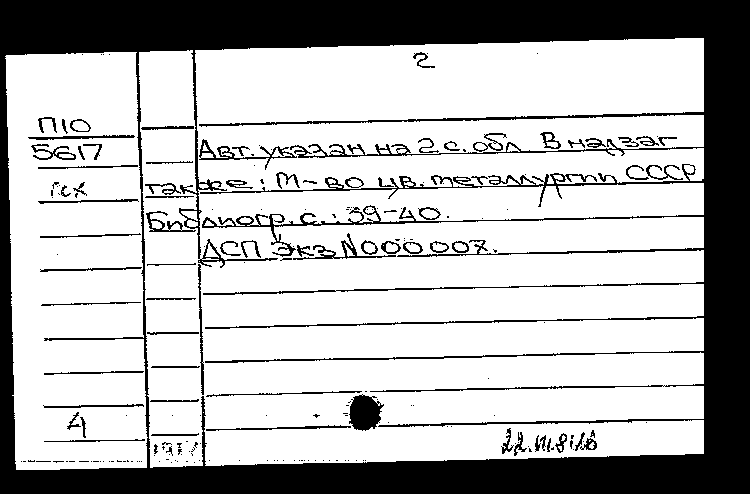 2
П10
5617
гсх
Авт. указан на 2 с. обл В надзаг
также: М-во цв. металлургии СССР
Библиогр. с.: 39-40.
ДСП Экз N000007.
4